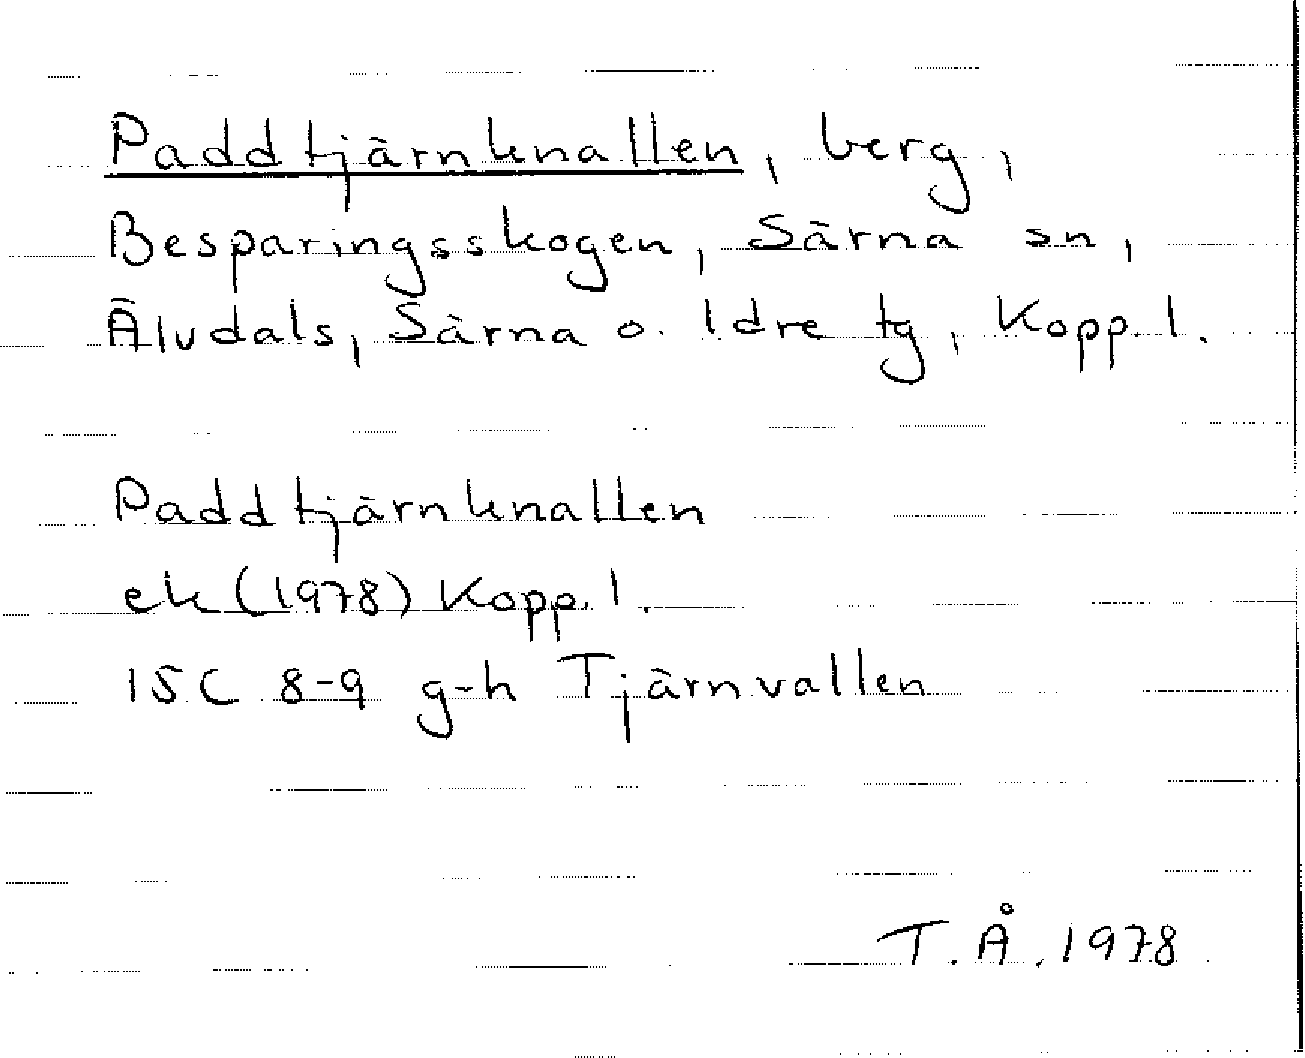 Paddtjärnknallen, berg,
Besparingsskogen, Särna sn,
Älvdals, Särna o. Idre tg, Kopp. l.
Paddtjärnknallen
ek (1978) Kopp. l.
15C 8-9 g-h Tjärnvallen
T.Å. 1978